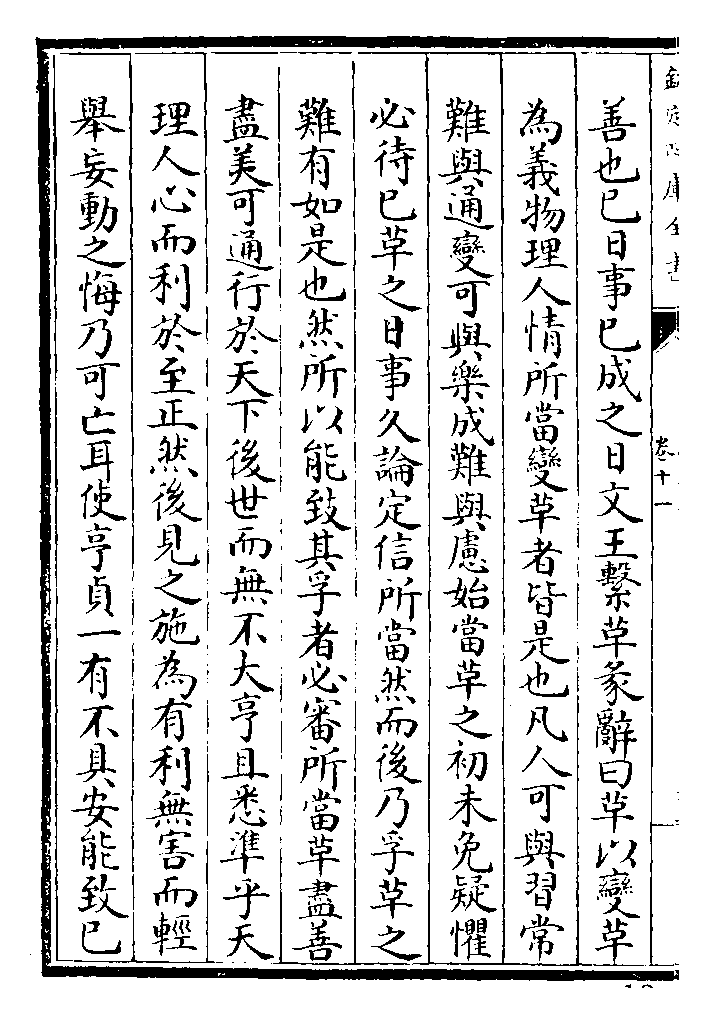 欽定四庫全書
卷十一
善也已日事已成之日文王繫革彖辭曰革以變革
為義物理人情所當變革者皆是也凡人可與習常
難與通變可與樂成難與慮始當革之初未免疑懼
必待已革之日事久論定信所當然而後乃孚革之
難有如是也然所以能致其孚者必審所當革盡善
盡美可通行於天下後世而無不大亨且悉準乎天
理人心而利於至正然後見之施為有利無害而輕
舉妄動之悔乃可亡耳使亨貞一有不具安能致已